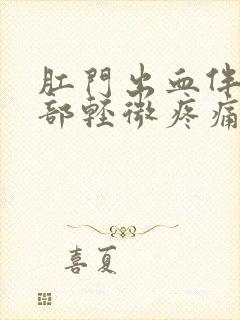 肛門出血伴
部輕微疼痛
喜夏